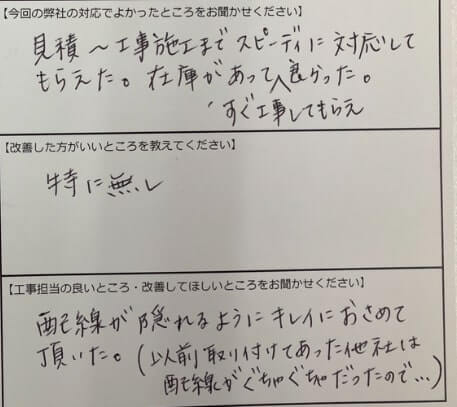 【今回の弊社の対応でよかったところをお聞かせください】
見積～工事施工までスピーディに対応して
もらえた。在庫があって良かった。
すぐ工事してもらえ
【改善した方がいいところを教えてください】
特に無し
【工事担当の良いところ・改善してほしいところをお聞かせください】
配線が隠れるようにキレイにおさめて
頂いた。(以前取り付けてあった他社は
配線がぐちゃぐちゃだったので…)